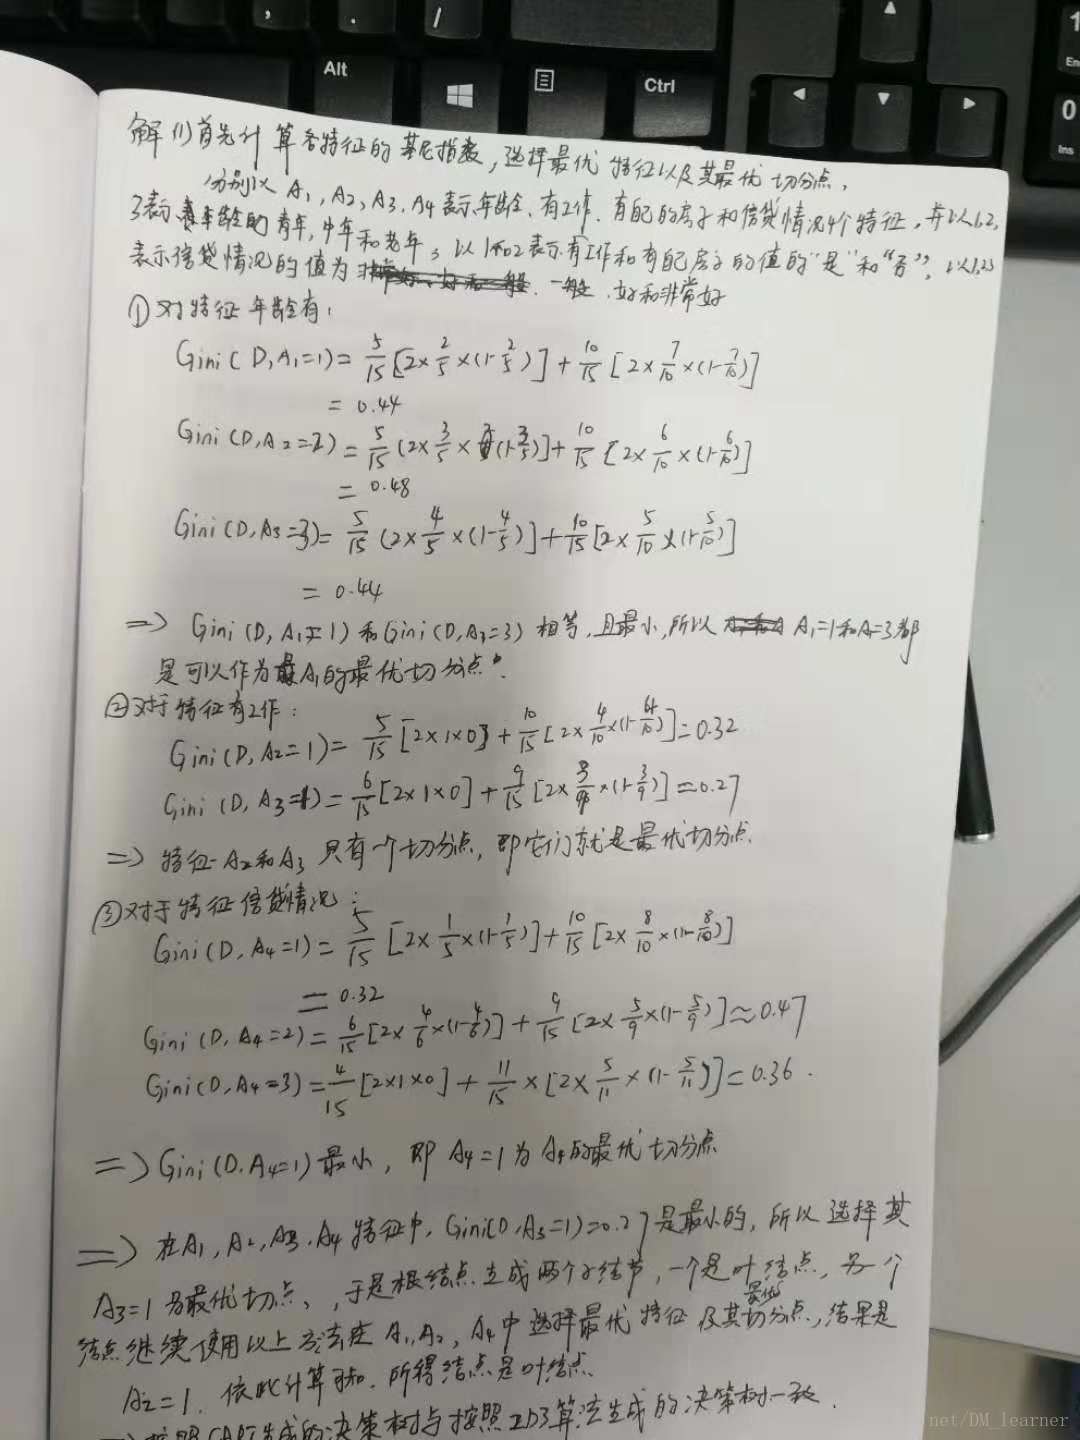 , . /
Alt Ctrl
1
En
0
Ins
解 (1)首先计算各特征的基尼指数,选择最优特征以及其最优切分点,
分别以 A1, A2, A3, A4 表示年龄、有工作、有自己的房子和信贷情况4个特征,并以1,2,
3表示年龄的青年,中年和老年,以1和2表示有工作和有自己房子的值的“是”和“否”,以1,2,3
表示信贷情况的值为 一般、好和非常好
①对特征年龄有:
Gini(D,A1=1)= 5/15 [2×2/5×(1-2/5)] + 10/15 [2×7/10×(1-7/10)]
= 0.44
Gini(D,A2=2)= 5/15 (2×3/5×(1-3/5)] + 10/15 [2×6/10×(1-6/10)]
= 0.48
Gini(D,A3=3)= 5/15 (2×4/5×(1-4/5)] + 10/15 [2×5/10×(1-5/10)]
= 0.44
=> Gini(D,A1=1)和Gini(D,A3=3)相等,且最小,所以 A1=1和A=3都
是可以作为A1的最优切分点.
②对于特征有工作:
Gini(D,A2=1)= 5/15 [2×1×0] + 10/15 [2×4/10×(1-4/10)]=0.32
Gini(D,A3=1)= 6/15 [2×1×0] + 9/15 [2×3/9×(1-3/9)]=0.27
=> 特征A2和A3只有一个切分点,即它们就是最优切分点.
③对于特征信贷情况:
Gini(D,A4=1)= 5/15 [2×1/5×(1-1/5)] + 10/15 [2×8/10×(1-8/10)]
= 0.32
Gini(D,A4=2)= 6/15 [2×4/6×(1-4/6)] + 9/15 [2×5/9×(1-5/9)]≈0.47
Gini(D,A4=3)= 4/15 [2×1×0] + 11/15 × [2×5/11×(1-5/11)]=0.36.
=> Gini(D.A4=1)最小,即A4=1为A4的最优切分点
=> 在A1, A2, A3, A4特征中,Gini(D,A3=1)=0.27是最小的,所以选择其
A3=1为最优切点,于是根结点生成两个子结节,一个是叶结点,另一个
结点继续使用以上方法在A1,A2,A4中选择最优特征及其最优切分点,结果是
A2=1. 依此计算可知,所得结点是叶结点.
=> 按照CART生成的决策树与按照ID3算法生成的决策树一致.
net/DM_learner